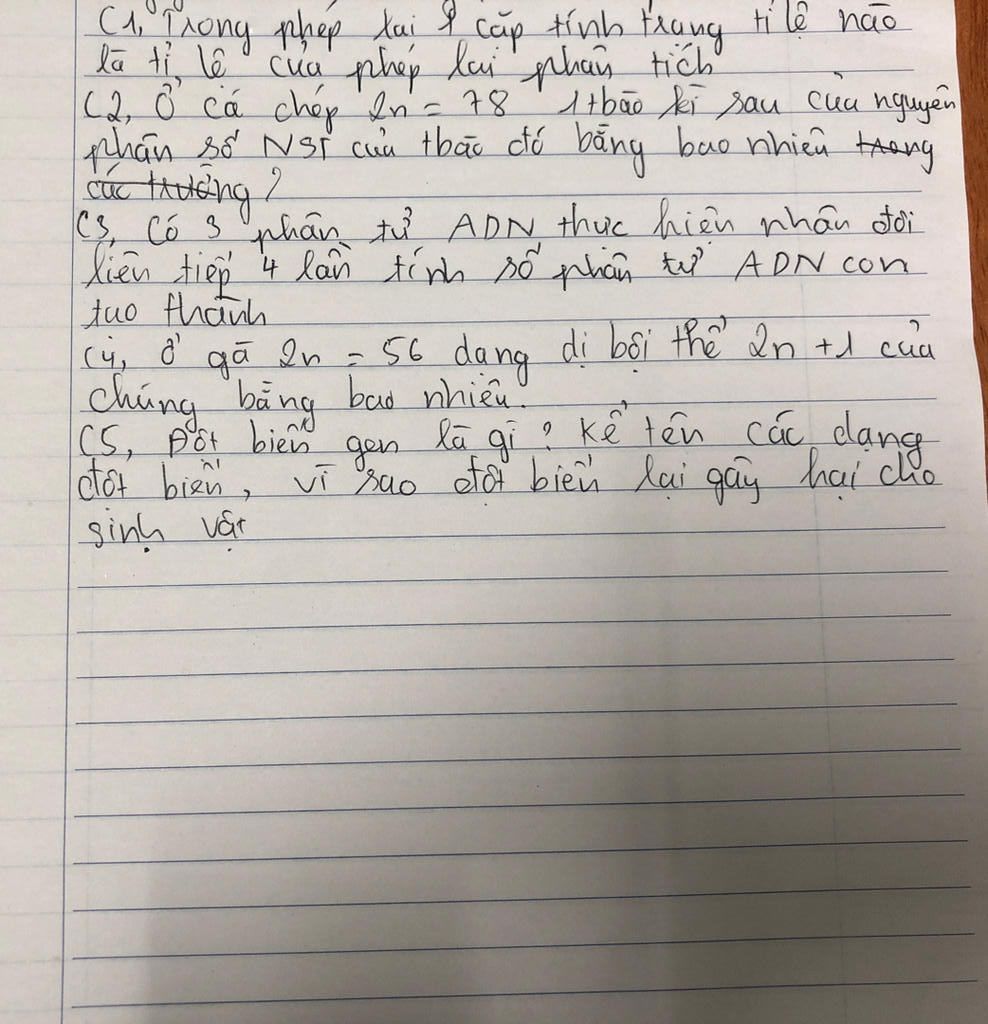 C1, Trong phép lai 1 cặp tính trạng tỉ lệ nào
là tỉ lệ của phép lai phân tích
C2, Ở cá chép 2n = 78 1 tbào kì sau của nguyên
phân số NST của tbào đó bằng bao nhiêu trong
các trường?
C3, Có 3 phân tử ADN thực hiện nhân đôi
liên tiếp 4 lần tính số phân tử ADN con
tạo thành
C4, Ở gà 2n = 56 dạng dị bội thể 2n +1 của
chúng bằng bao nhiêu.
C5, Đột biến gen là gì? Kể tên các dạng
đột biến, vì sao đột biến lại gây hại cho
sinh vật